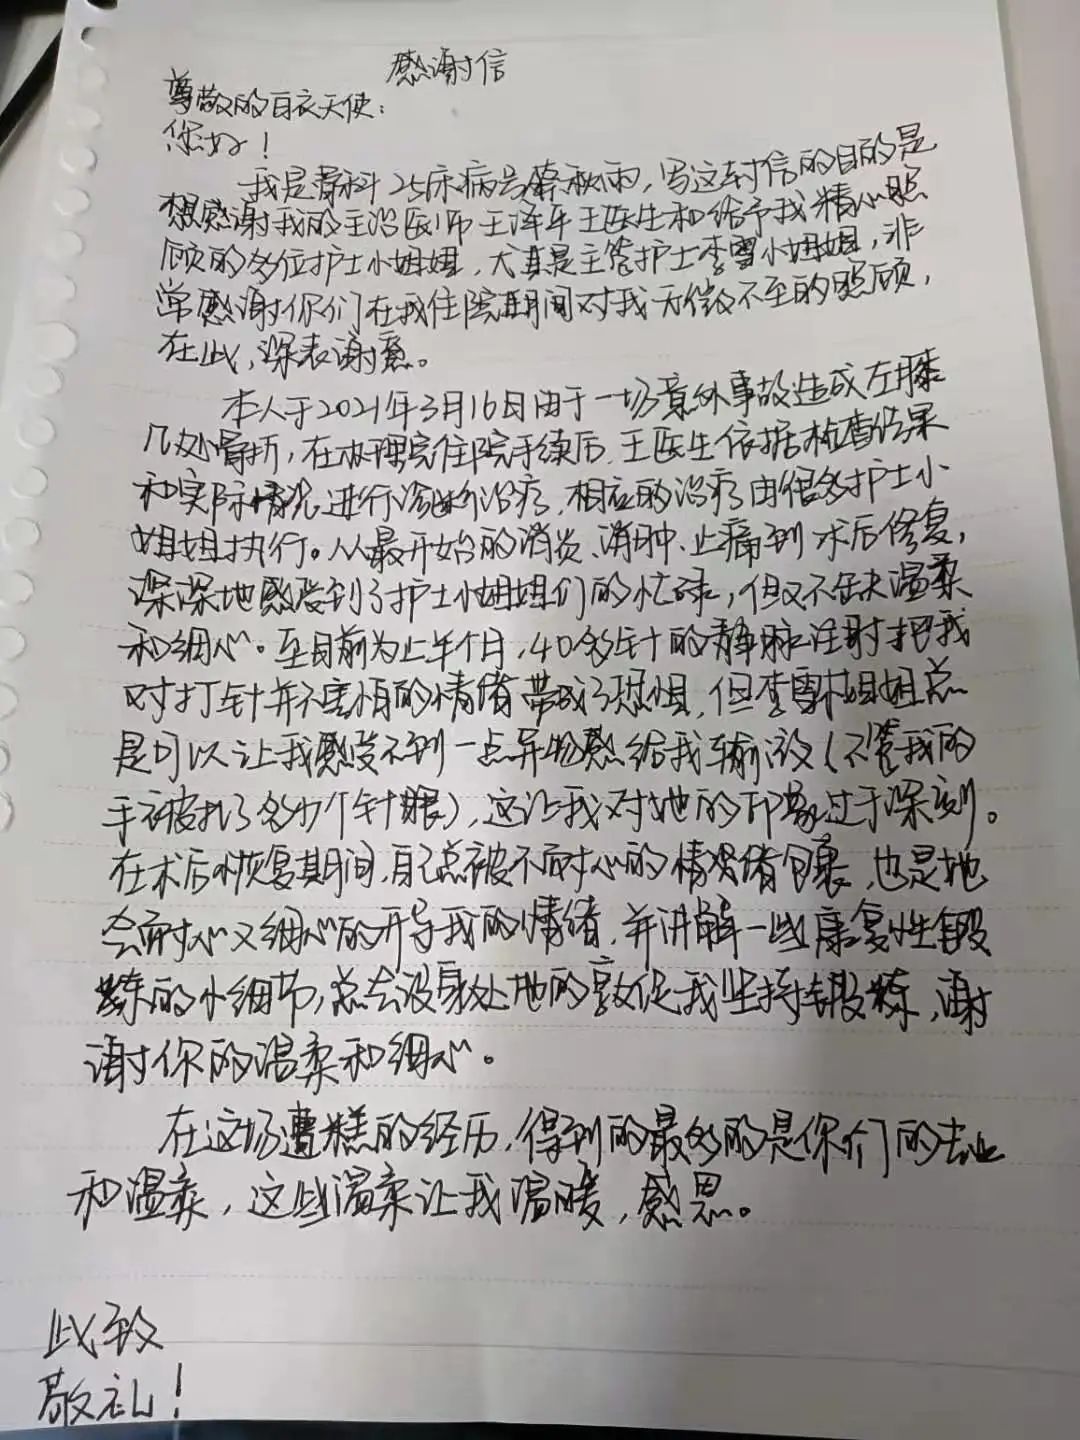 感谢信
尊敬的白衣天使：
您好！
我是骨科25床病号秋雨，写这封信的目的是
想感谢我的主治医师王泽平王医生和给予我精心照
顾的多位护士小姐姐，尤其是主管护士李雪小姐姐，非
常感谢你们在我住院期间对我无微不至的照顾，
在此，深表谢意。
本人于2021年3月16日由于一场意外事故造成左膝
几处骨折，在办理完住院手续后，王医生依据检查结果
和实际情况进行诊断治疗，相应的治疗由很多护士小
姐姐执行。从最开始的消炎、消肿、止痛到术后修复，
深深地感受到了护士小姐姐们的忙碌，但又不缺失温柔
和细心。至目前为止半个月，40多针的静脉注射把我
对打针并不害怕的情绪带成了恐惧，但李雪小姐姐总
是可以让我感受不到一点异物感给我输液（不管我的
手被扎了多少个针眼），这让我对她的印象过于深刻。
在术后恢复期间，自己总被不耐心的情绪包裹，也是她
会耐心又细心的开导我的情绪，并讲解一些康复性锻
炼的小细节，总会设身处地的敦促我坚持锻炼，谢
谢你的温柔和细心。
在这场遭糕的经历，得到的最多的是你们的专业
和温柔，这些温柔让我温暖，感恩。
此致
敬礼！